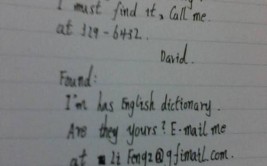 I must find it, Call me
at 329-6432.
David.
Found:
I'm has English dictionary.
Are they yours? E-mail me
at Li Fengz@gfimail.com.